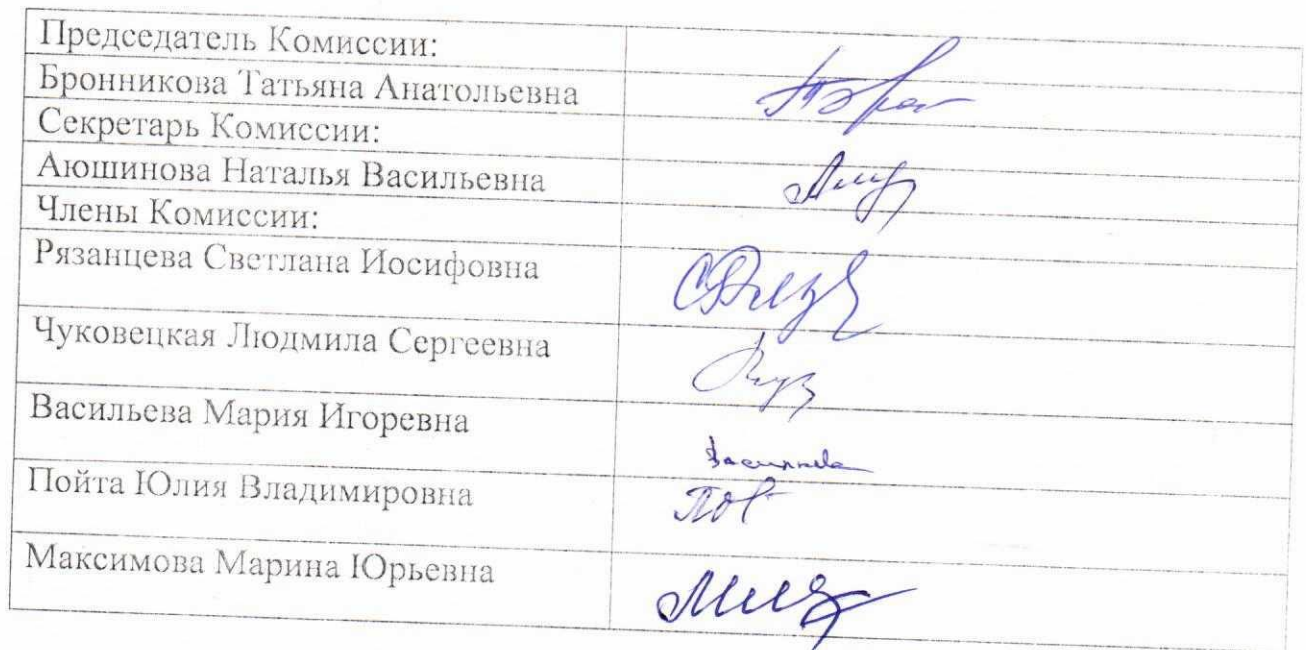 Председатель Комиссии:
Бронникова Татьяна Анатольевна
Секретарь Комиссии:
Аюшинова Наталья Васильевна
Члены Комиссии:
Рязанцева Светлана Иосифовна
Чуковецкая Людмила Сергеевна
Васильева Мария Игоревна
Пойта Юлия Владимировна
Максимова Марина Юрьевна